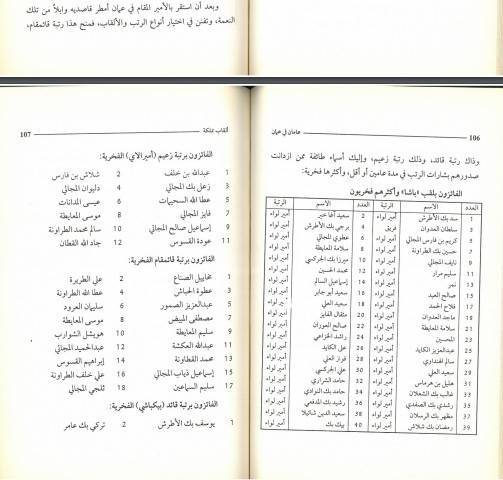 وبعد أن استقر بالأمير المقام في عمان أمطر قاصديه وابلاً من تلك
النعمة، وتفنن في اختيار أنواع الرتب والألقاب، فمنح هذا رتبة قائمقام،
عامان في عمان 106
وذاك رتبة قائد، وذلك رتبة زعيم، وإليك أسماء طائفة ممن ازدانت
صدورهم بشارات الرتب في مدة عامين أو أقل، وأكثرها فخرية:
الفائزون بلقب «باشا» وأكثرهم فخريون
العدد الرتبة العدد الرتبة
1 سند بك الأطرش أمير لواء 2 سعيد أمير لواء
3 سلطان العدوان فريق 4 برجي بك الأطرش أمير لواء
5 كريم بن فارس المجالي أمير لواء 6 عطوي المجالي أمير لواء
7 حسين بك الطراونة أمير لواء 8 سلامة المعايطة أمير لواء
9 نايف المجالي أمير لواء 10 ميرزا بك الجركسي أمير لواء
11 سليم مرار أمير لواء 12 محمد الحسين أمير لواء
13 نمر أمير لواء 14 إسماعيل السالم أمير لواء
15 صالح العيد أمير لواء 16 سعيد أبو جابر أمير لواء
17 فلاح الحمد أمير لواء 18 سعيد العلي أمير لواء
19 ماجد العدوان أمير لواء 20 مثقال الفايز أمير لواء
21 سلامة أمير لواء 22 صالح العوران أمير لواء
23 المحسين أمير لواء 24 راشد الخزاعي أمير لواء
25 عبدالعزيز الكايد أمير لواء 26 علي الكايد أمير لواء
27 سالم الهنداوي أمير لواء 28 فواز العلي أمير لواء
29 سعيد العلي أمير لواء 30 علي الجركسي أمير لواء
31 هليل بن هرماس أمير لواء 32 حامد الشراري أمير لواء
33 غالب بك الشعلان أمير لواء 34 حمد بك النوادي أمير لواء
35 رشدي بك الصفدي أمير لواء 36 رشيد بك المدفعي أمير لواء
37 مظهر بك الرسلان أمير لواء 38 سعيد الدين شاتيلا أمير لواء
39 رمضان بك شلاش أمير لواء 40 بيك بك أمير لواء
107 ألقاب مملكة
الفائزون برتبة زعيم (أميرالاي) الفخرية:
1 عبدالله بن خلف 2 شلاش بن فارس
3 زعل بك المجالي 4 دليوان المجالي
5 عطا الله السحيمات 6 عيسى المدانات
7 فايز المجالي 8 موسى المعايطة
9 إسماعيل صالح المجالي 10 سالم محمد الطراونة
11 عودة القسوس 12 جاد الله القطان
الفائزون برتبة قائمقام الفخرية:
1 مخاييل الصناع 2 علي الطريرة
3 عطوة الحباشي 4 عطا الله الطراونة
5 عبدالعزيز الصمور 6 سليمان العرود
7 مصطفى المبيض 8 موسى المعايطة
9 سليم المعايطة 10 هويشل الشوارب
11 عبدالله العكشة 12 عبدالحميد المجالي
13 محمد القطاونة 14 إبراهيم القسوس
15 إسماعيل ذياب المجالي 16 علي خلف الطراونة
17 سليم السماعين 18 تلجي المجالي
الفائزون برتبة قائد (بيكباشي) الفخرية:
1 يوسف بك الأطرش 2 تركي بك عامر